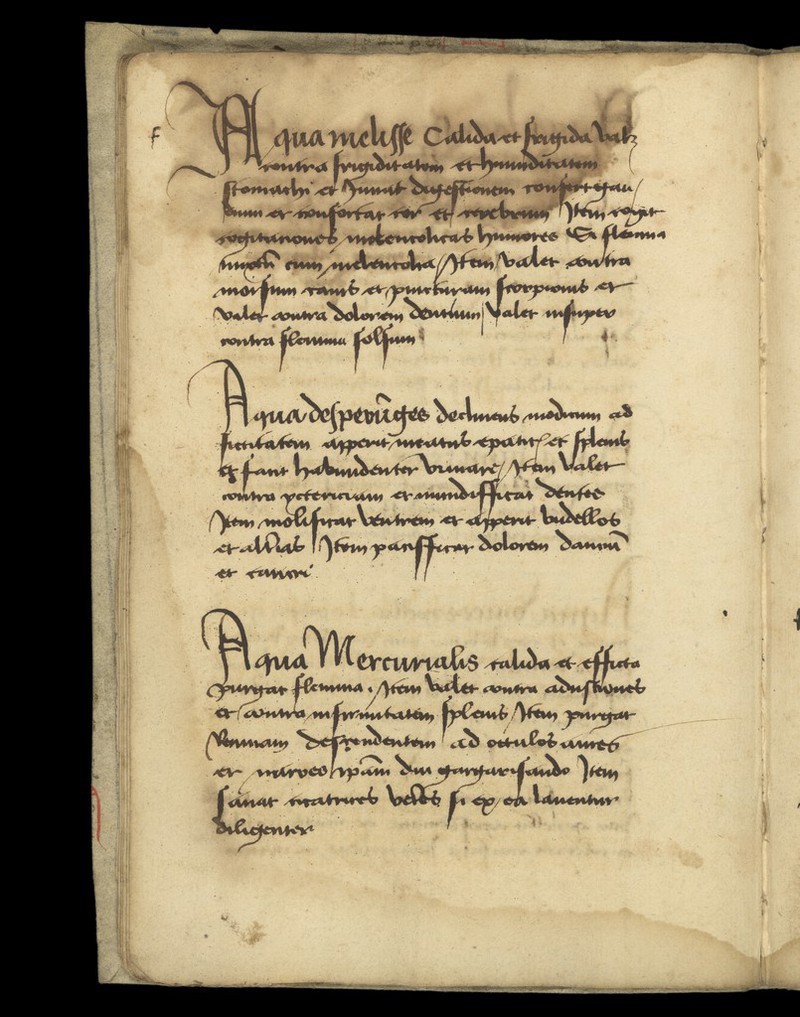 f
Aqua melisse Calida et frigida valz
contra frigiditatem et humiditatem
stomachi et Juvat digestionem confert gau/
dium et confortat cor et cerebrum Item
cogitationes melencolicas humores Et flemma
cum melencolia / Item valet contra
morsum canis et puncturam scorpionis et
valet contra dolorem dentium / valet insuper
contra flemma solsum
Aqua declinens modicum ad
siccitatem apperit meatus epatis et splenis
et facit habundenter urinare / Item valet
contra yctericiam et mundifficat dentes
Item molificat ventrem et apperit budellos
et Item pacifficat dolorem
et cancri
Aqua Mercurialis calida et
purgat flemma . Item valet contra adustiones
et contra infirmitatem splenis / Item purgat
Reumam descendentem ad occulos aures
et nares diu gargarisando Item
sanat cicatrices si ex ea laventur
diligenter